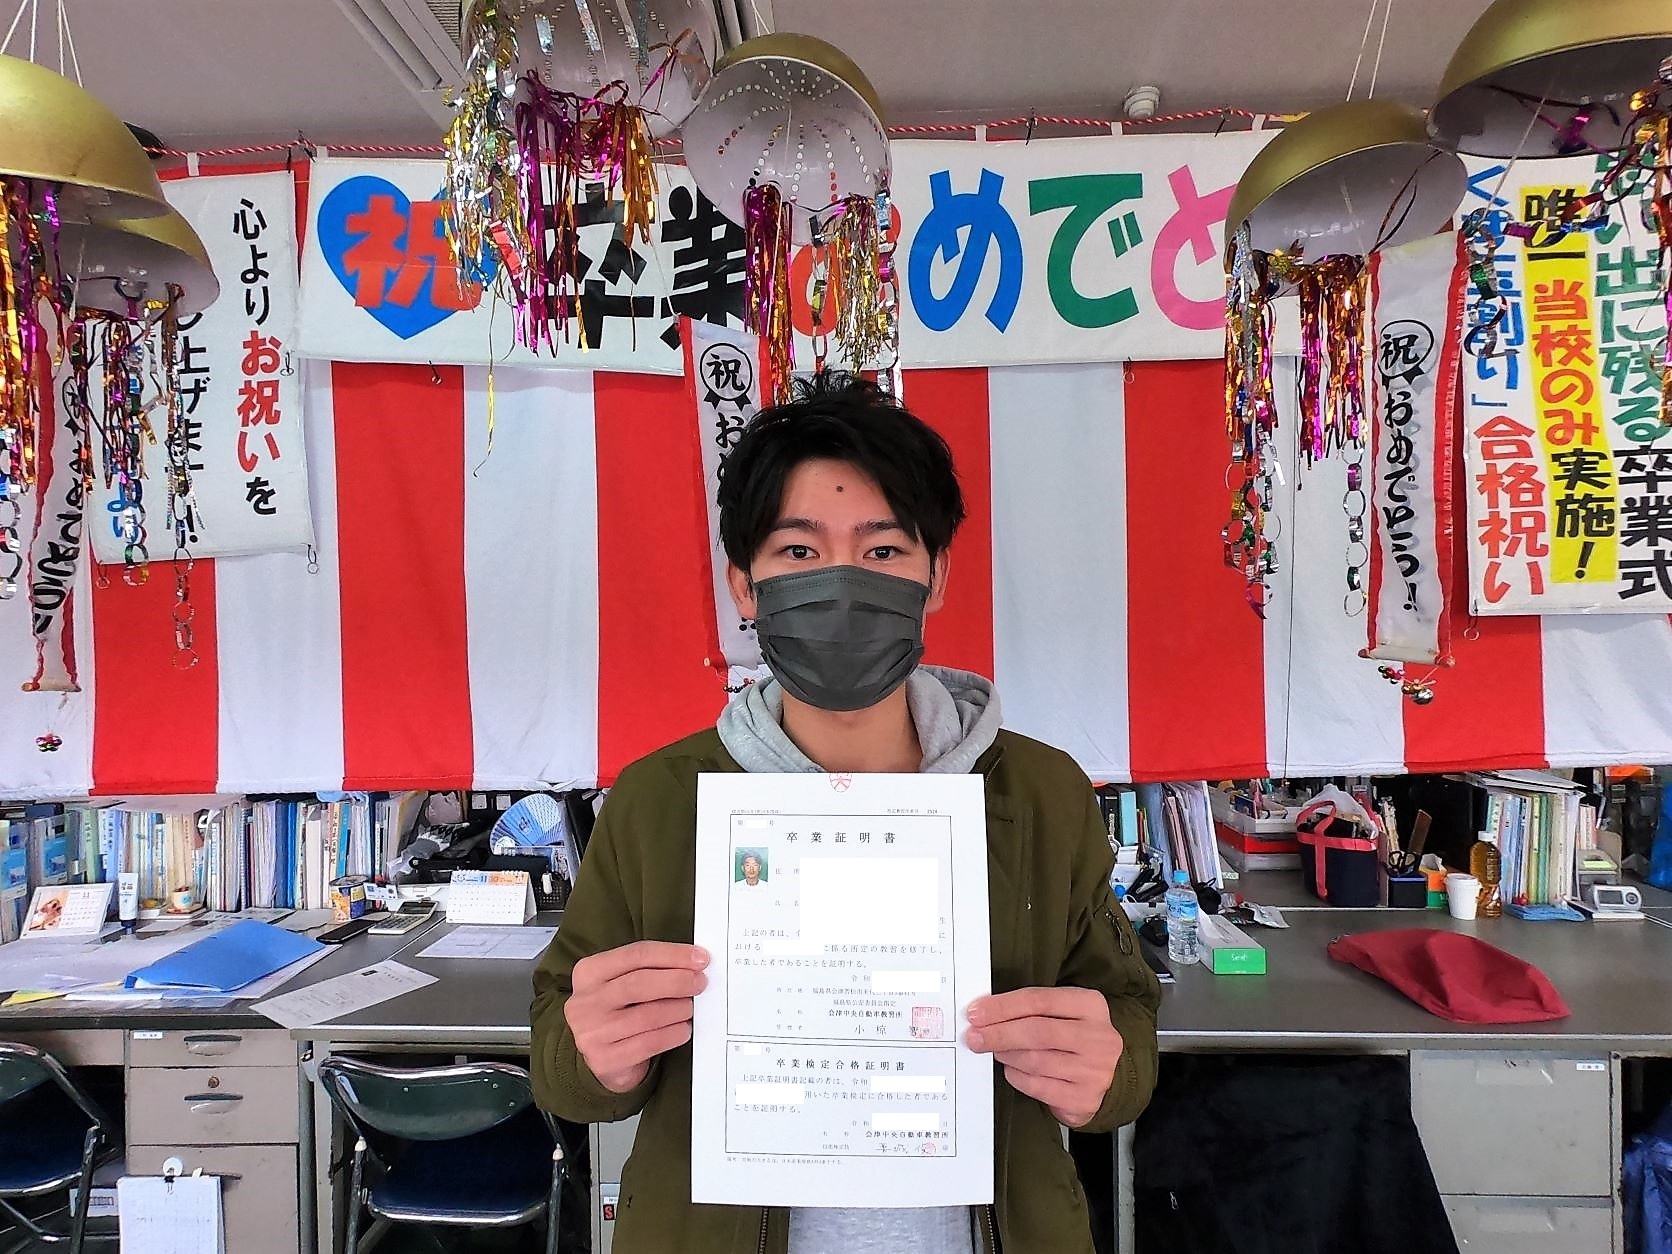 心より
お祝いを
し上げます!
祝
卒業おめでと
祝
お
祝
おめでとう!
思い出に残る卒業式
唯一当校のみ実施!
くす玉割り」合格祝い
第 号
卒業証明書
氏名
生
上記の者は、
に
おける
に係る所定の教習を修了し、
卒業した者であることを証明する。
令和
福島県公安委員会指定
名 称 会津中央自動車教習所
管理者 小椋
第 号
卒業検定合格証明書
上記卒業証明書記載の者は、令和
用いた卒業検定に合格した者である
ことを証明する。
令和 日
名 称 会津中央自動車教習所